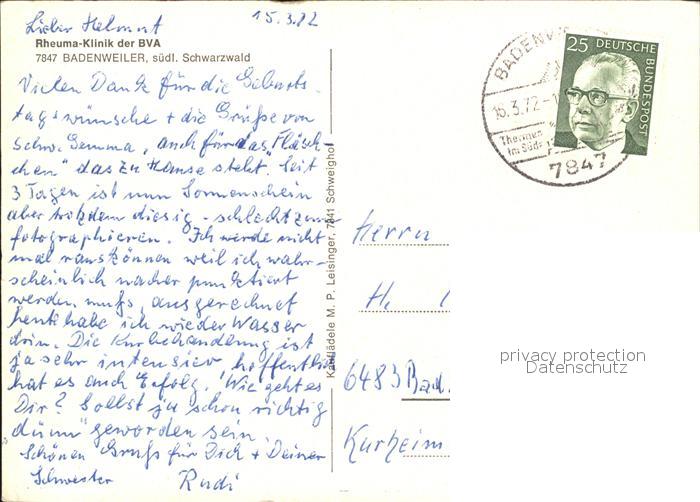 Lieber Helmut
15.3.72
Rheuma-Klinik der BVA
7847 BADENWEILER, südl. Schwarzwald
Vielen Dank für die Geburts-
tagswünsche + die Grüße von
Schw. Gemma, auch für das "Fläsch
chen" das zu Hause steht. Seit
3 Tagen ist nun Sonnenschein
aber trotzdem diesig - schlecht zum
fotographieren. Ich werde nicht
mal rauskönnen weil ich wahr-
scheinlich nachher punktiert
werden muß, ausgerechnet
heute habe ich wieder Wasser
drin. Die Kurbehandlung ist
ja sehr intensiv, hoffentlich
hat es auch Erfolg. Wie geht es
Dir? Sollst ja schon richtig
"dünn" geworden sein.
Schönen Gruß für Dich + Deiner
Schwester Rudi
Kauflädele M. P. Leisinger, 7841 Schweighof
BADENW
16.3.72-1
Thermen
im Süds
7847
25 DEUTSCHE
BUNDESPOST
Herrn
H.
6483 Bad
Kurheim
privacy protection
Datenschutz